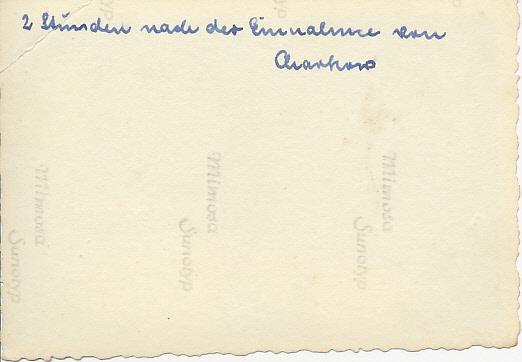 2 Stunden nach der Einnahme von
Charkow
Mimosa
Sunotyp
Mimosa
Sunotyp
Mimosa
Sunotyp